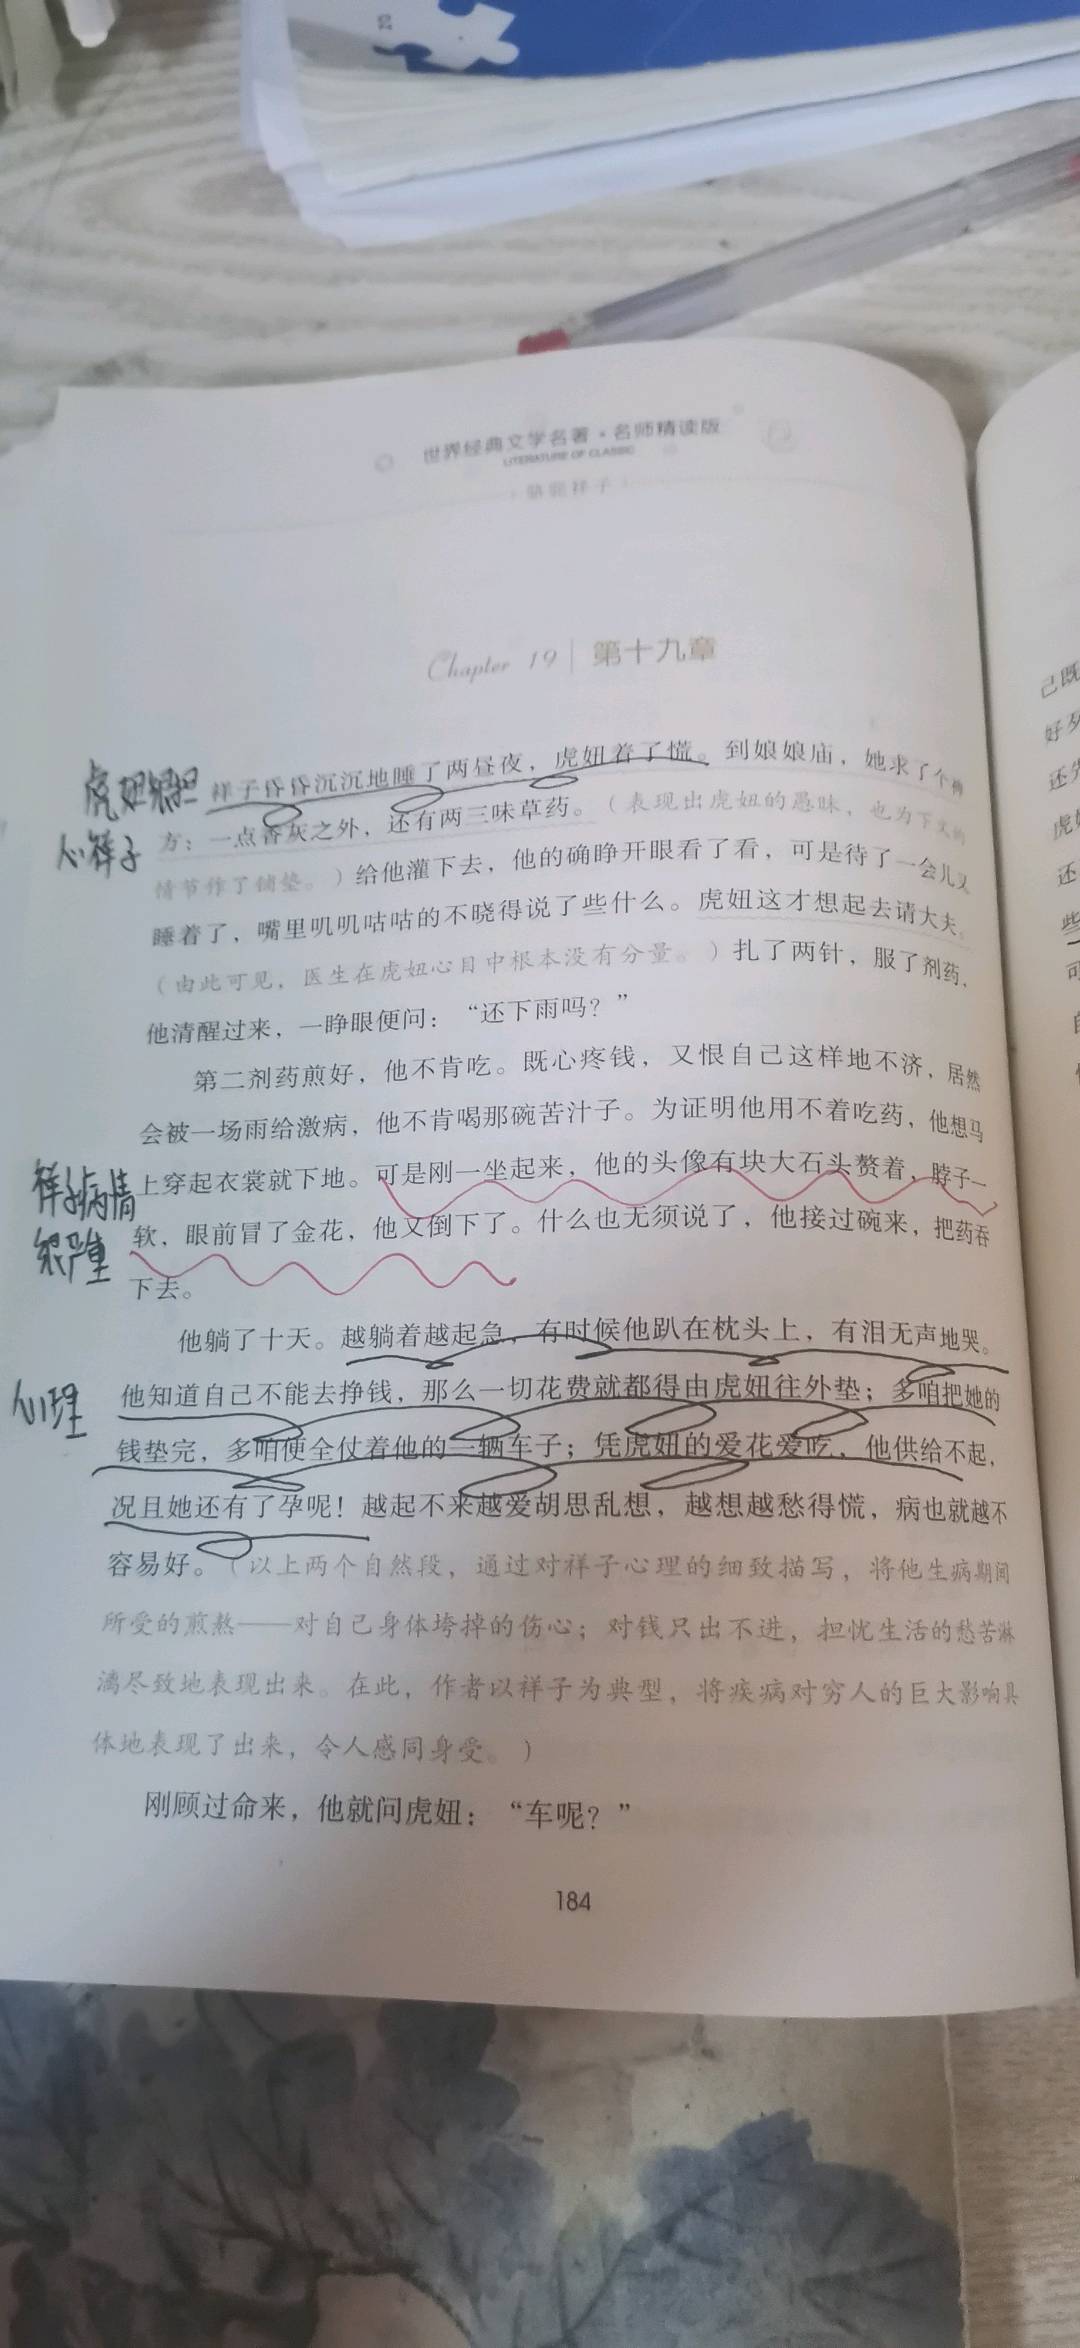 世界经典文学名著·名师精读版
LITERATURE OF CLASSIC
骆驼祥子
Chapter 19 第十九章
虎妞很担
心祥子
祥子昏昏沉沉地睡了两昼夜，虎妞着了慌。到娘娘庙，她求了个神
方：一点香灰之外，还有两三味草药。（表现出虎妞的愚昧，也为下文的
情节作了铺垫。）给他灌下去，他的确睁开眼看了看，可是待了一会儿又
睡着了，嘴里叽叽咕咕的不晓得说了些什么。虎妞这才想起去请大夫。
（由此可见，医生在虎妞心目中根本没有分量。）扎了两针，服了剂药，
他清醒过来，一睁眼便问：“还下雨吗？”
第二剂药煎好，他不肯吃。既心疼钱，又恨自己这样地不济，居然
会被一场雨给激病，他不肯喝那碗苦汁子。为证明他用不着吃药，他想马
祥子病情
很严重
上穿起衣裳就下地。可是刚一坐起来，他的头像有块大石头赘着，脖子一
软，眼前冒了金花，他又倒下了。什么也无须说了，他接过碗来，把药吞
下去。
他躺了十天。越躺着越起急，有时候他趴在枕头上，有泪无声地哭。
心理
他知道自己不能去挣钱，那么一切花费就都得由虎妞往外垫；多咱把她的
钱垫完，多咱便全仗着他的一辆车子；凭虎妞的爱花爱吃，他供给不起，
况且她还有了孕呢！越起不来越爱胡思乱想，越想越愁得慌，病也就越不
容易好。（以上两个自然段，通过对祥子心理的细致描写，将他生病期间
所受的煎熬——对自己身体垮掉的伤心；对钱只出不进，担忧生活的愁苦淋
漓尽致地表现出来。在此，作者以祥子为典型，将疾病对穷人的巨大影响具
体地表现了出来，令人感同身受。）
刚顾过命来，他就问虎妞：“车呢？”
184
己既
好歹
还
虎妞
还
些
可